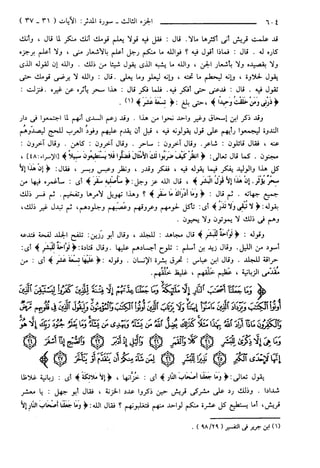 ٦٠٤ الجزء الثالث - سورة المدثر: الآيات (٣١ - ٣٧)
قد علمت قريش أنى أكثرها مالا. قال: فقل فيه قولا يعلم قومك أنك منكر لما قال، وأنك
كاره له. قال: فماذا أقول فيه؟ فوالله ما منكم رجل أعلم بالأشعار منى، ولا أعلم برجزه
ولا بقصيده ولا بأشعار الجن، والله ما يشبه الذى يقول شيئا من ذلك. والله إن لقوله الذى
يقول لحلاوة، وإنه ليحطم ما تحته، وإنه ليعلو وما يعلى. قال: والله لا يرضى قومك حتى
تقول فيه. قال: فدعنى حتى أفكر فيه. فلما فكر قال: هذا سحر يأثره عن غيره. فنزلت:
﴿ذَرْنِي وَمَنْ خَلَقْتُ وَحِيدًا﴾، حتى بلغ: ﴿تِسْعَةَ عَشَرَ﴾ (١).
وقد ذكر ابن إسحاق وغير واحد نحوا من هذا. وقد زعم السدى أنهم لما اجتمعوا فى دار
الندوة ليجمعوا رأيهم على قول يقولونه فيه، قبل أن يقدم عليهم وفود العرب للحج ليصدوهم
عنه، فقال قائلون: شاعر. وقال آخرون: ساحر. وقال آخرون: كاهن. وقال آخرون:
مجنون. كما قال تعالى: ﴿انظُرْ كَيْفَ ضَرَبُوا لَكَ الْأَمْثَالَ فَضَلُّوا فَلَا يَسْتَطِيعُونَ سَبِيلًا﴾ [الإسراء: ٤٨]،
كل هذا والوليد يفكر فيما يقوله فيه، ففكر وقدر، ونظر وعبس وبسر، فقال: ﴿إِنْ هَٰذَا إِلَّا
سِحْرٌ يُؤْثَرُ. إِنْ هَٰذَا إِلَّا قَوْلُ الْبَشَرِ﴾، قال الله عز وجل: ﴿سَأُصْلِيهِ سَقَرَ﴾ أى: سأغمره فيها من
جميع جهاته. ثم قال: ﴿وَمَا أَدْرَاكَ مَا سَقَرُ﴾؟ وهذا تهويل لأمرها وتفخيم. ثم فسر ذلك
بقوله: ﴿لَا تُبْقِي وَلَا تَذَرُ﴾ أى: تأكل لحومهم وعروقهم وعصبهم وجلودهم، ثم تبدل غير ذلك،
وهم فى ذلك لا يموتون ولا يحيون.
وقوله: ﴿لَوَّاحَةٌ لِّلْبَشَرِ﴾ قال مجاهد: للجلد، وقال أبو رزين: تلفح الجلد لفحة فتدعه
أسود من الليل. وقال زيد بن أسلم: تلوح أجسادهم عليها. وقال قتادة: ﴿لَوَّاحَةٌ لِّلْبَشَرِ﴾ أى:
حراقة للجلد. وقال ابن عباس: تحرق بشرة الإنسان. وقوله: ﴿عَلَيْهَا تِسْعَةَ عَشَرَ﴾ أى: من
مقدمى الزبانية، عظيم خلقهم، غليظ خلقهم.
﴿وَمَا جَعَلْنَا أَصْحَابَ النَّارِ إِلَّا مَلَائِكَةً وَمَا جَعَلْنَا عِدَّتَهُمْ إِلَّا فِتْنَةً لِّلَّذِينَ كَفَرُوا لِيَسْتَيْقِنَ الَّذِينَ
أُوتُوا الْكِتَابَ وَيَزْدَادَ الَّذِينَ آمَنُوا إِيمَانًا وَلَا يَرْتَابَ الَّذِينَ أُوتُوا الْكِتَابَ وَالْمُؤْمِنُونَ وَلِيَقُولَ الَّذِينَ فِي قُلُوبِهِم مَّرَضٌ
وَالْكَافِرُونَ مَاذَا أَرَادَ اللَّهُ بِهَٰذَا مَثَلًا كَذَٰلِكَ يُضِلُّ اللَّهُ مَن يَشَاءُ وَيَهْدِي مَن يَشَاءُ وَمَا يَعْلَمُ جُنُودَ رَبِّكَ إِلَّا هُوَ
وَمَا هِيَ إِلَّا ذِكْرَىٰ لِلْبَشَرِ (٣١) كَلَّا وَالْقَمَرِ (٣٢) وَاللَّيْلِ إِذْ أَدْبَرَ (٣٣) وَالصُّبْحِ إِذَا أَسْفَرَ (٣٤)
إِنَّهَا لَإِحْدَى الْكُبَرِ (٣٥) نَذِيرًا لِّلْبَشَرِ (٣٦) لِمَن شَاءَ مِنكُمْ أَن يَتَقَدَّمَ أَوْ يَتَأَخَّرَ (٣٧)﴾
يقول تعالى: ﴿وَمَا جَعَلْنَا أَصْحَابَ النَّارِ﴾ أى: خزانها، ﴿إِلَّا مَلَائِكَةً﴾ أى: زبانية غلاظا
شدادا. وذلك رد على مشركى قريش حين ذكروا عدد الخزنة، فقال أبو جهل: يا معشر
قريش، أما يستطيع كل عشرة منكم لواحد منهم فتغلبونهم؟ فقال الله: ﴿وَمَا جَعَلْنَا أَصْحَابَ النَّارِ إِلَّا
(١) ابن جرير فى التفسير (٩٨/٢٩).